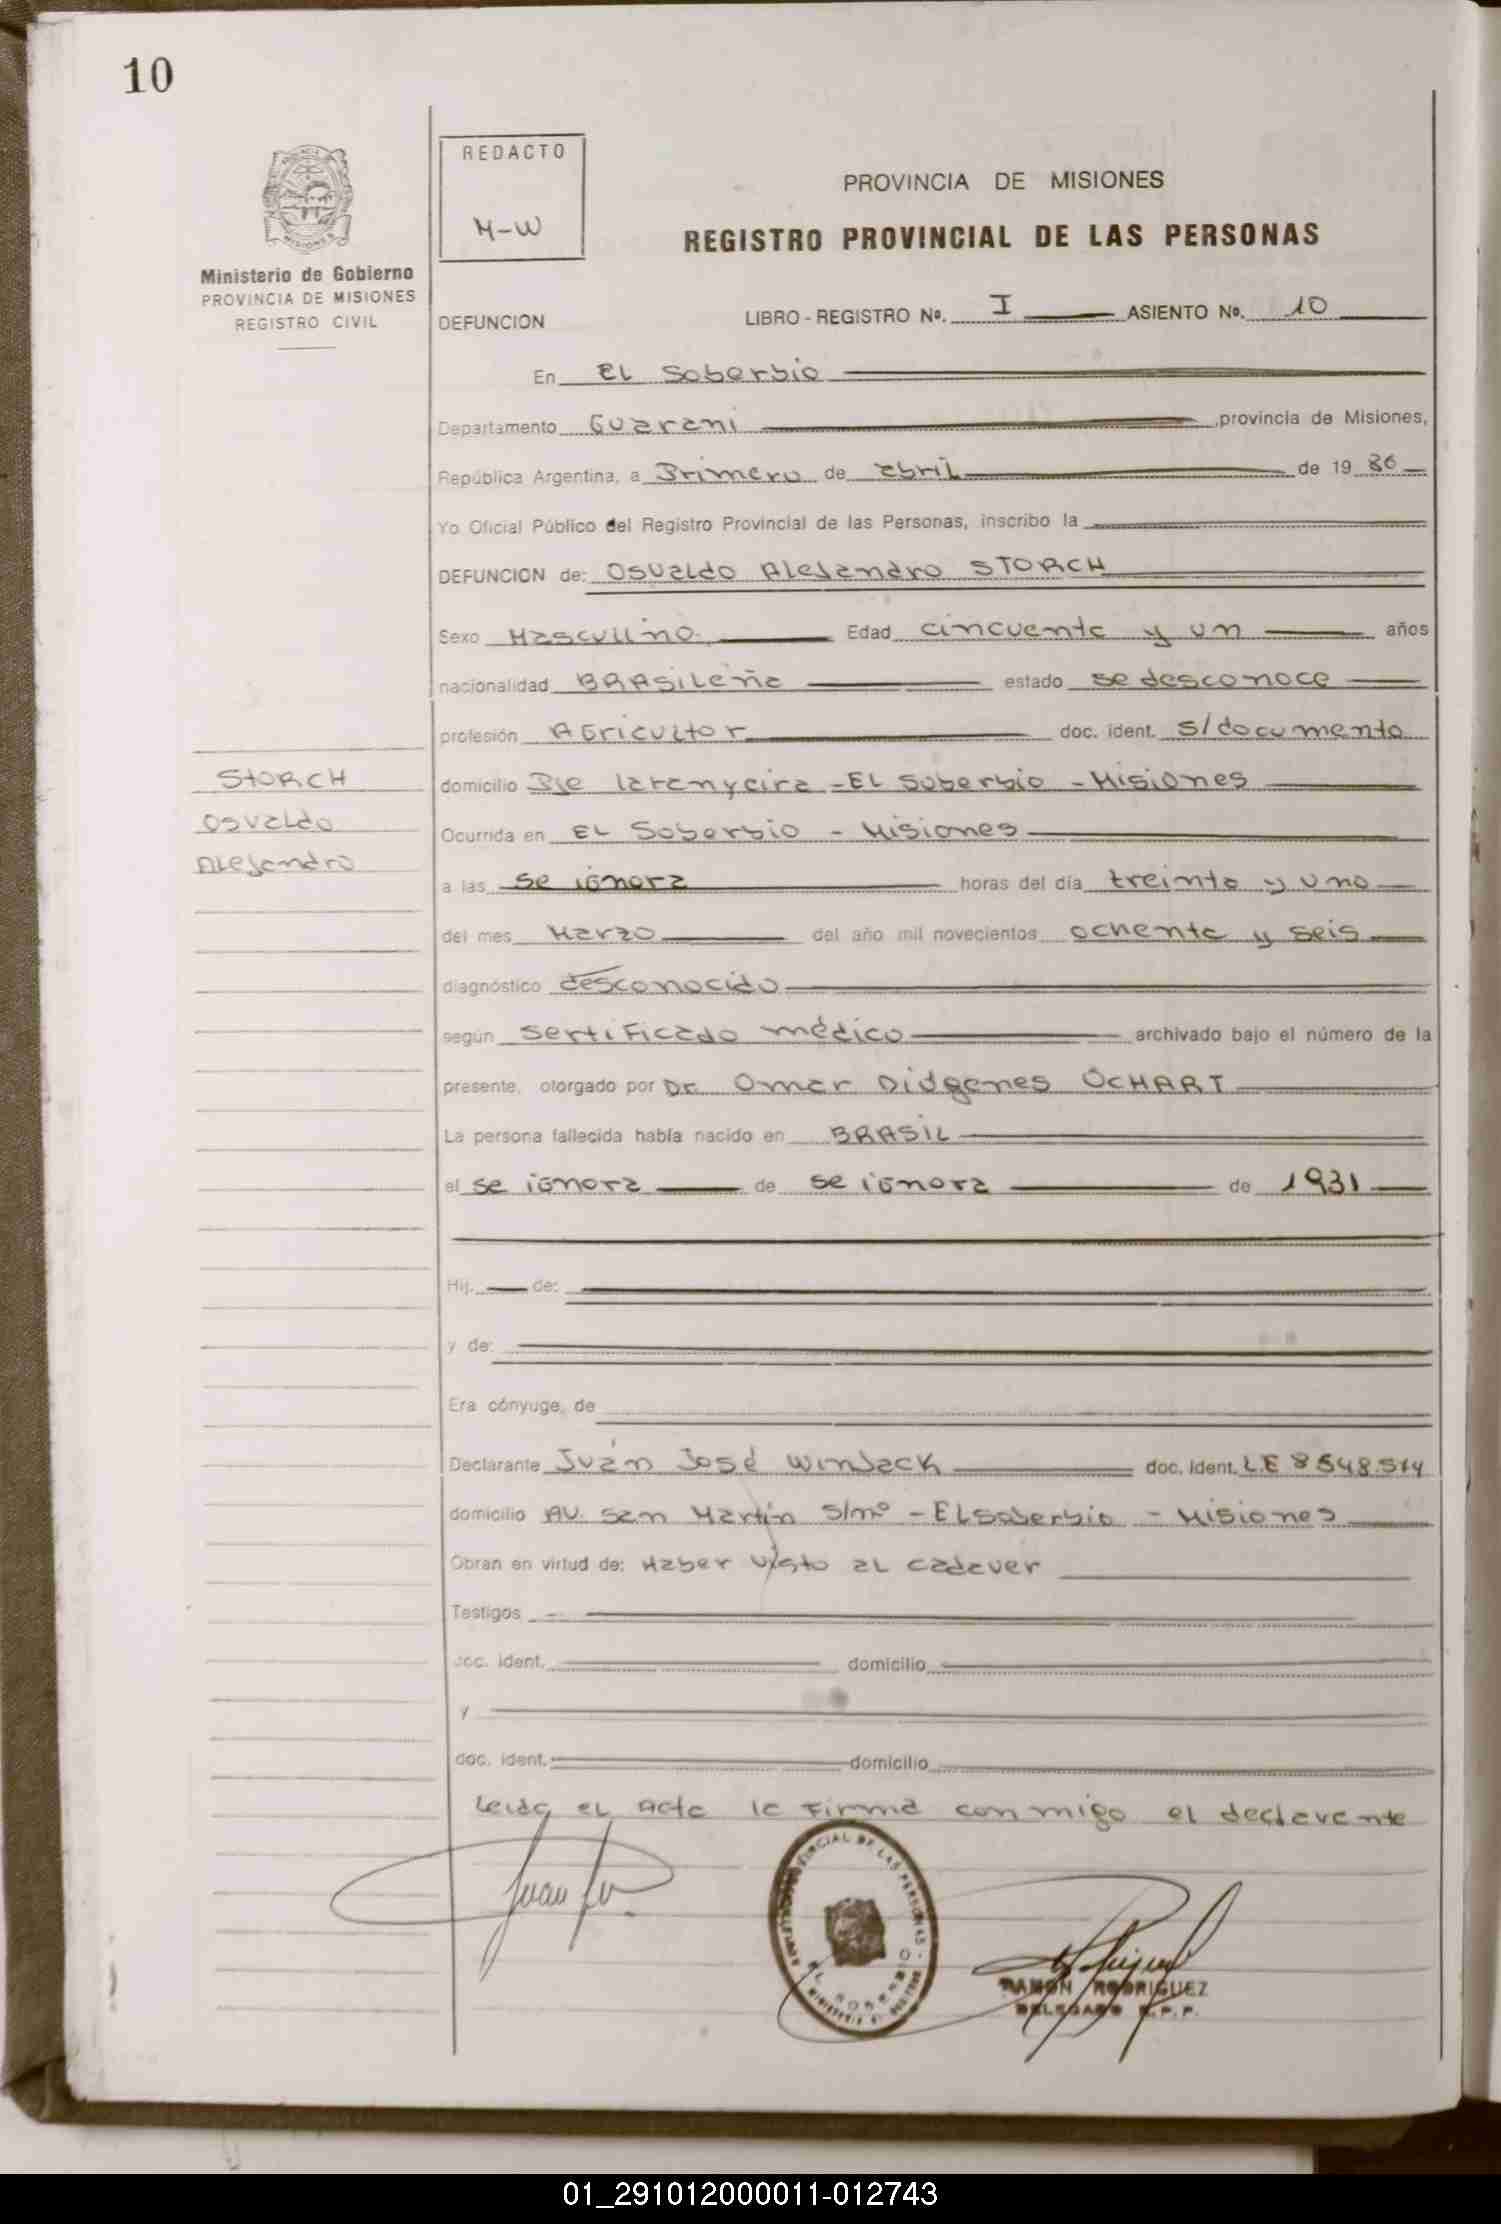 10
REDACTO
M-W
PROVINCIA DE MISIONES
REGISTRO PROVINCIAL DE LAS PERSONAS
Ministerio de Gobierno
PROVINCIA DE MISIONES
REGISTRO CIVIL
DEFUNCION LIBRO - REGISTRO Nº. I ASIENTO Nº. 10
En EL Soberbio
Departamento Guarani ,provincia de Misiones,
República Argentina, a Primero de abril de 19 86
Yo Oficial Público del Registro Provincial de las Personas, inscribo la
DEFUNCION de: Osvaldo Alejandro STORCH
Sexo Masculino. Edad cincuenta y un años
nacionalidad BRASILEÑa estado se desconoce
profesión AGricultor doc. ident. S/documento
STORCH
Osvaldo
Alejandro
domicilio Pje laranyeira - EL Soberbio - Misiones
Ocurrida en EL Soberbio - Misiones
a las se ignora horas del día treinta y uno
del mes Marzo del año mil novecientos ochenta y seis
diagnóstico desconocido
según sertificado médico archivado bajo el número de la
presente, otorgado por Dr. Omar Diógenes OCHART
La persona fallecida había nacido en BRASIL
el se ignora de se ignora de 1931
Hij. de:
y de:
Era cónyuge, de
Declarante Juan José Winjack doc. Ident. L.E 8548.514
domicilio AV. San Martín S/nº - EL Soberbio - Misiones
Obran en virtud de: Haber visto al cadaver
Testigos
doc. ident. domicilio
y
doc. ident. domicilio
Leida el Acta la Firma conmigo el declarente
Juan
EL SOBERBIO
RAMON RODRIGUEZ
DELEGADO R.P.P.
01_291012000011-012743